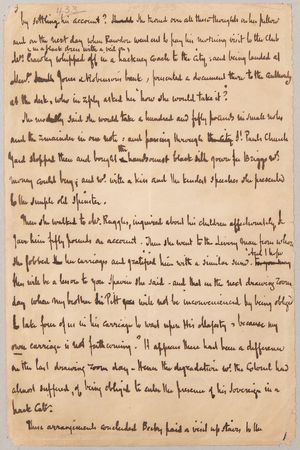 by settling his account? She turned over all these thoughts on her pillow
and on the next day when Rawdon went to pay his morning visit to the Club
in a plain dress with a veil on
Mrs. Crawley whipped off in a hackney coach to the city: and being landed at
Messrs. Jones & Robinsons bank, presented a document there to the authority
at the desk, who in reply asked her "how she would take it?"
She modestly said she would take a hundred and fifty pounds in small notes
and the remainder in one note: and passing through St. Pauls Church
Yard stopped there and bought the handsomest black silk gown for Briggs wh.
money could buy; and wh with a kiss and the kindest speeches she presented
to the simple old Spinster.
Then she walked to Mr. Raggles, inquired about his children affectionately, &
gave him fifty pounds on account. Then she went to the Livery man from whom
she jobbed her carriages and gratified him with a similar sum. And I hope
this will be a lesson to you Spavin she said - and that on the next drawing room
day when my brother Sir Pitt will not be inconvenienced by being obliged
to take four of us in his carriage to wait upon His Majesty, because my
own carriage is not forthcoming. It appears there had been a difference
on the last drawing room day - Hence the degradation wh. the Colonel had
almost suffered, of being obliged to enter the presence of his Sovereign in a
hack Cab.
These arrangements concluded Becky paid a visit up stairs to the